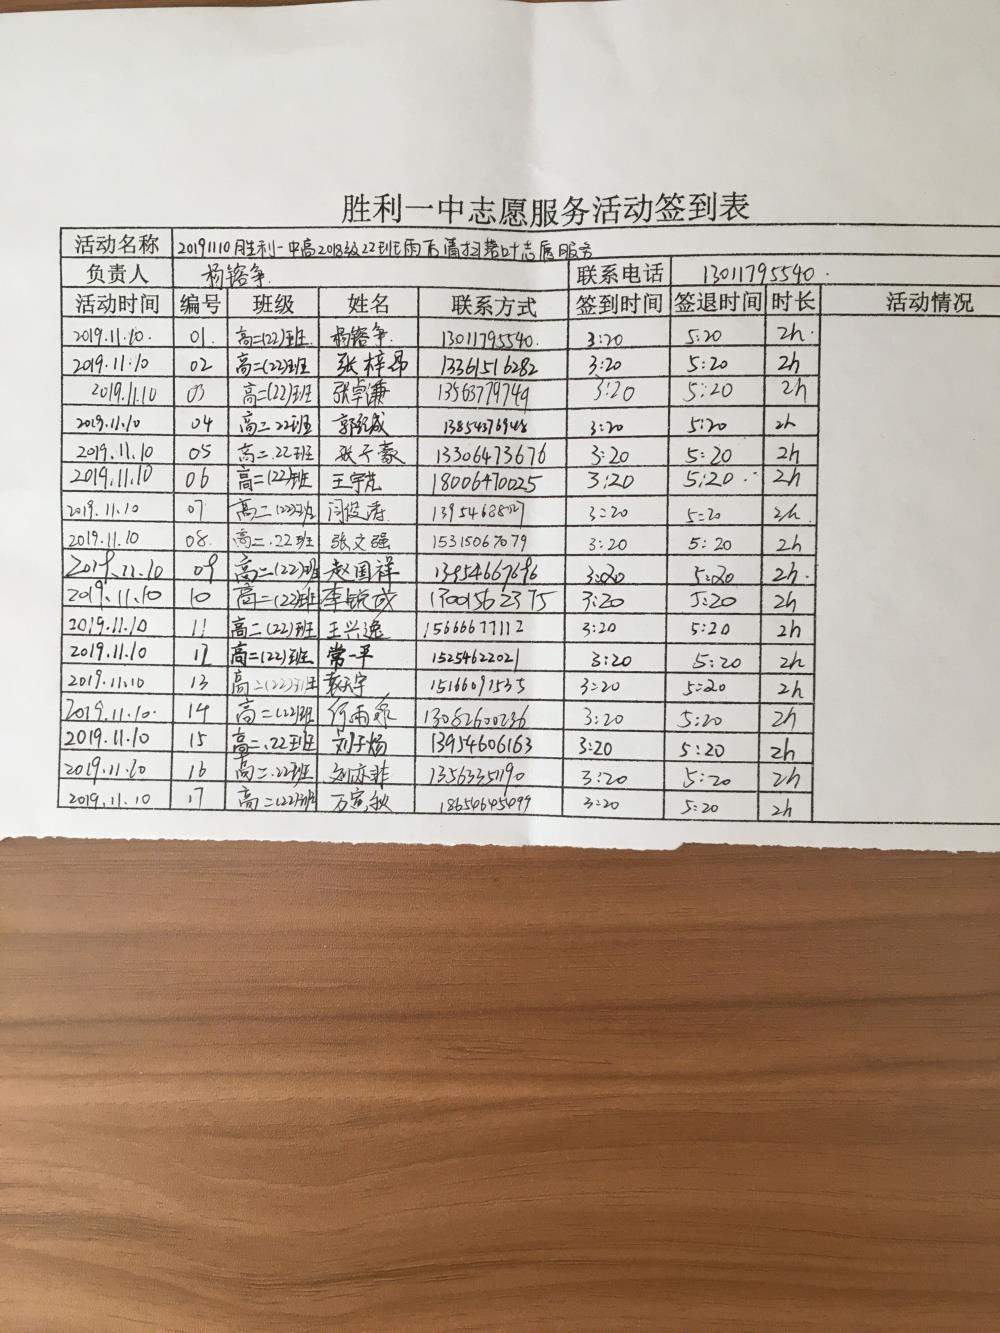 胜利一中志愿服务活动签到表
活动名称 20191110胜利一中高2018级22班雨后清扫落叶志愿服务
负责人 杨镕争 联系电话 13011795540.
活动时间 编号 班级 姓名 联系方式 签到时间 签退时间 时长 活动情况
2019.11.10. 01. 高二(22)班 杨镕争 13011795540. 3:20 5:20 2h.
2019.11.10 02 高二(22)班 张梓昂 13361516282 3:20 5:20 2h
2019.11.10 03 高二(22)班 张卓谦 13563779749 3:20 5:20 2h
2019.11.10 04 高二22班 郭纪成 13854376948 3:20 5:20 2h
2019.11.10 05 高二.22班 张子豪 13306473676 3:20 5:20 2h
2019.11.10 06 高二(22)班 王宇龙 18006470025 3:20 5:20 2h
2019.11.10 07 高二(22)班 闫俊涛 3:20 5:20 2h.
2019.11.10 08. 高二.22班 张文强 15315067079 3:20 5:20 2h
2019.11.10 09 高二(22)班 赵国祥 13954667696 3:20 5:20 2h.
2019.11.10 10 高二(22)班 李锐成 17001562375 3:20 5:20 2h
2019.11.10 11 高二(22)班 王兴逸 15666677112 3:20 5:20 2h
2019.11.10 12 高二(22)班 常一平 15254622021 3:20 5:20 2h
2019.11.10 13 高二(22)班 袁天宇 15166091535 3:20 5:20 2h
2019.11.10. 14 高二(22)班 何雨泉 13082600236 3:20 5:20 2h
2019.11.10 15 高二.22班 刘子炀 13954606163 3:20 5:20 2h
2019.11.10 16 高二.22班 刘亦菲 13563351190 3:20 5:20 2h
2019.11.10 17 高二(22)班 18650645499 3:20 5:20 2h